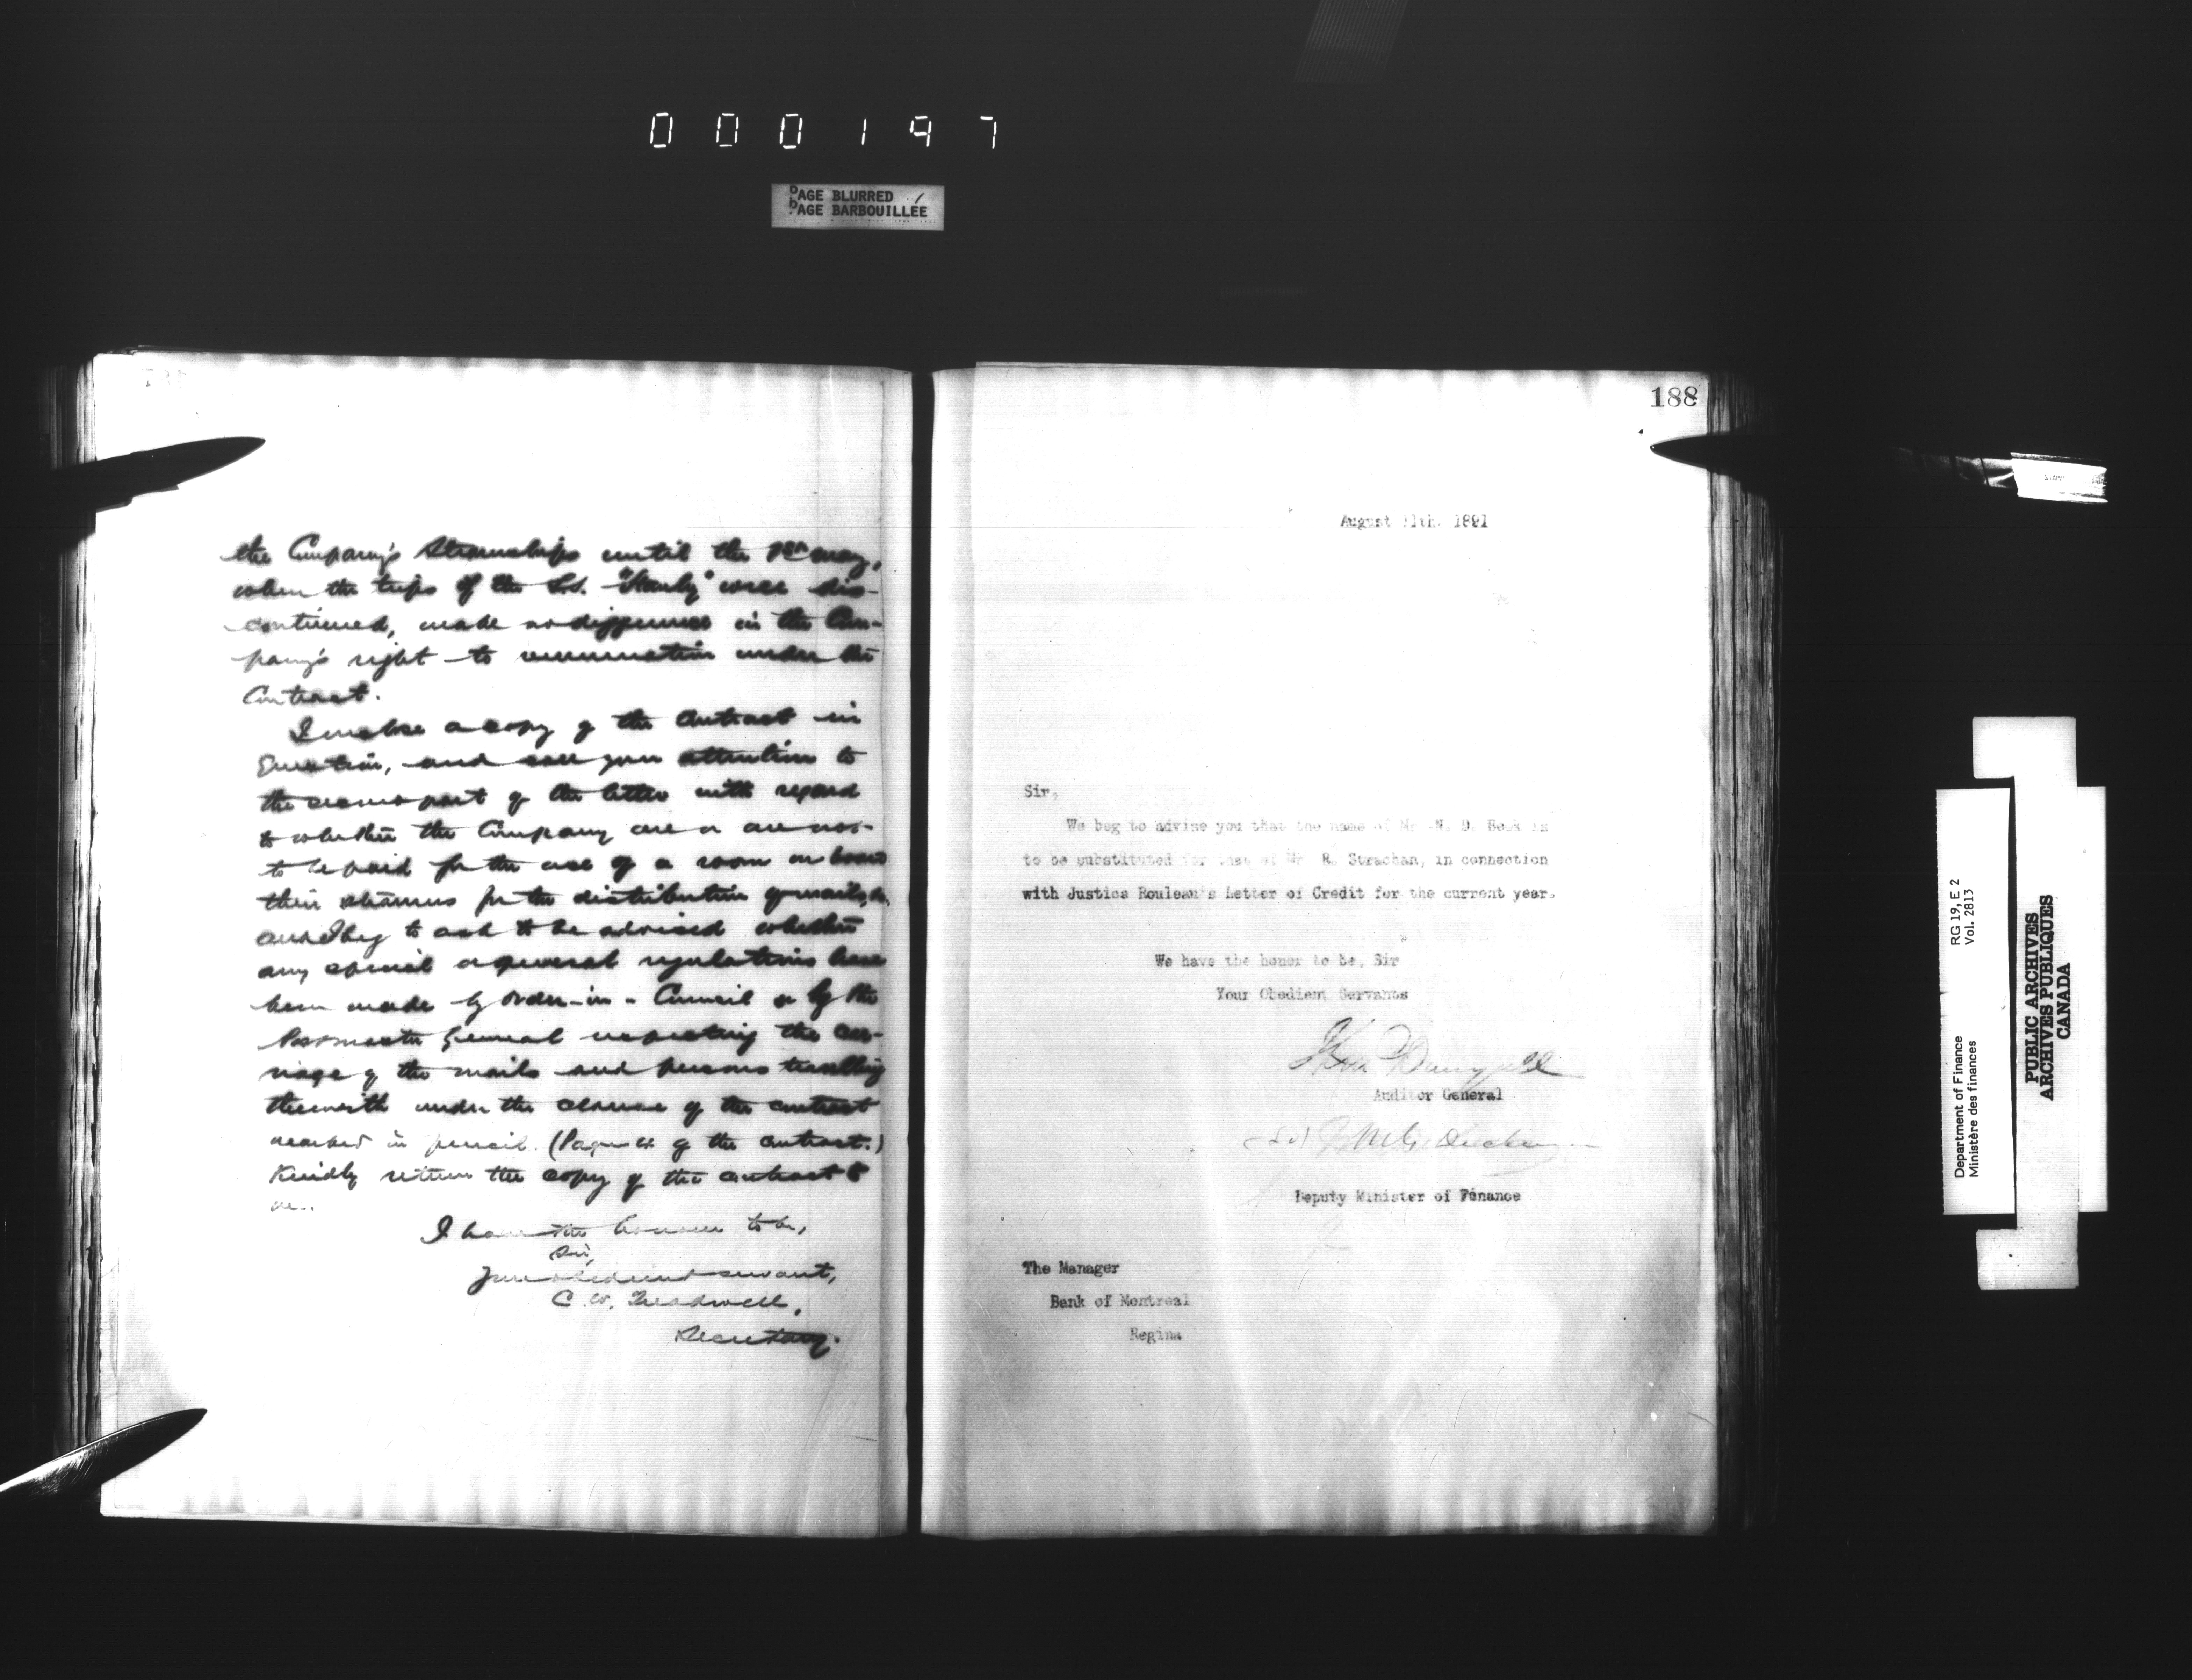 000197
PAGE BLURRED
PAGE BARBOUILLÉE
the Company's Steamships until the 1st May,
when the trips of the S.S. "Stanley" were dis-
continued, made no difference in the Com-
pany's right to remuneration under the
Contract.
I enclose a copy of the Contract in
question, and call your attention to
the second part of the letter with regard
to whether the Company are or are not
to be paid for the use of a room on board
their steamers for the distribution of mails, &c.
and I beg to ask to be advised whether
any special or general regulations have
been made by Order-in-Council or by the
Postmaster General respecting the car-
riage of the mails and persons travelling
therewith under the clause of the contract
marked in pencil. (Page 4 of the contract.)
Kindly return the copy of the contract to
me.
I have the honour to be,
Sir,
Your obedient servant,
C. W. Treadwell,
Secretary.
188
August 11th. 1891
Sir,
We beg to advise you that the name of Mr. N. D. Beck is
to be substituted for that of Mr. R. Strachan, in connection
with Justice Rouleau's Letter of Credit for the current year.
We have the honor to be, Sir
Your Obedient Servants
Auditor General
Deputy Minister of Finance
The Manager
Bank of Montreal
Regina
RG 19, E 2
Vol. 2813
Department of Finance
Ministère des finances
PUBLIC ARCHIVES
ARCHIVES PUBLIQUES
CANADA